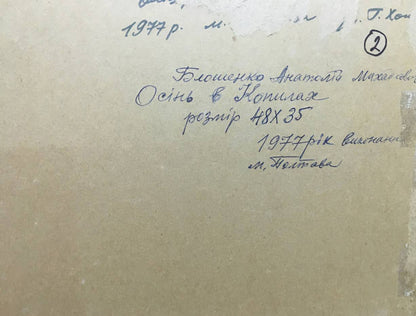 1977 р. м. Г. Хо
2
Блошенко Анатолій Михайлови
Осінь в Копилах
розмір 48х35
1977 рік виконання
м. Полтава